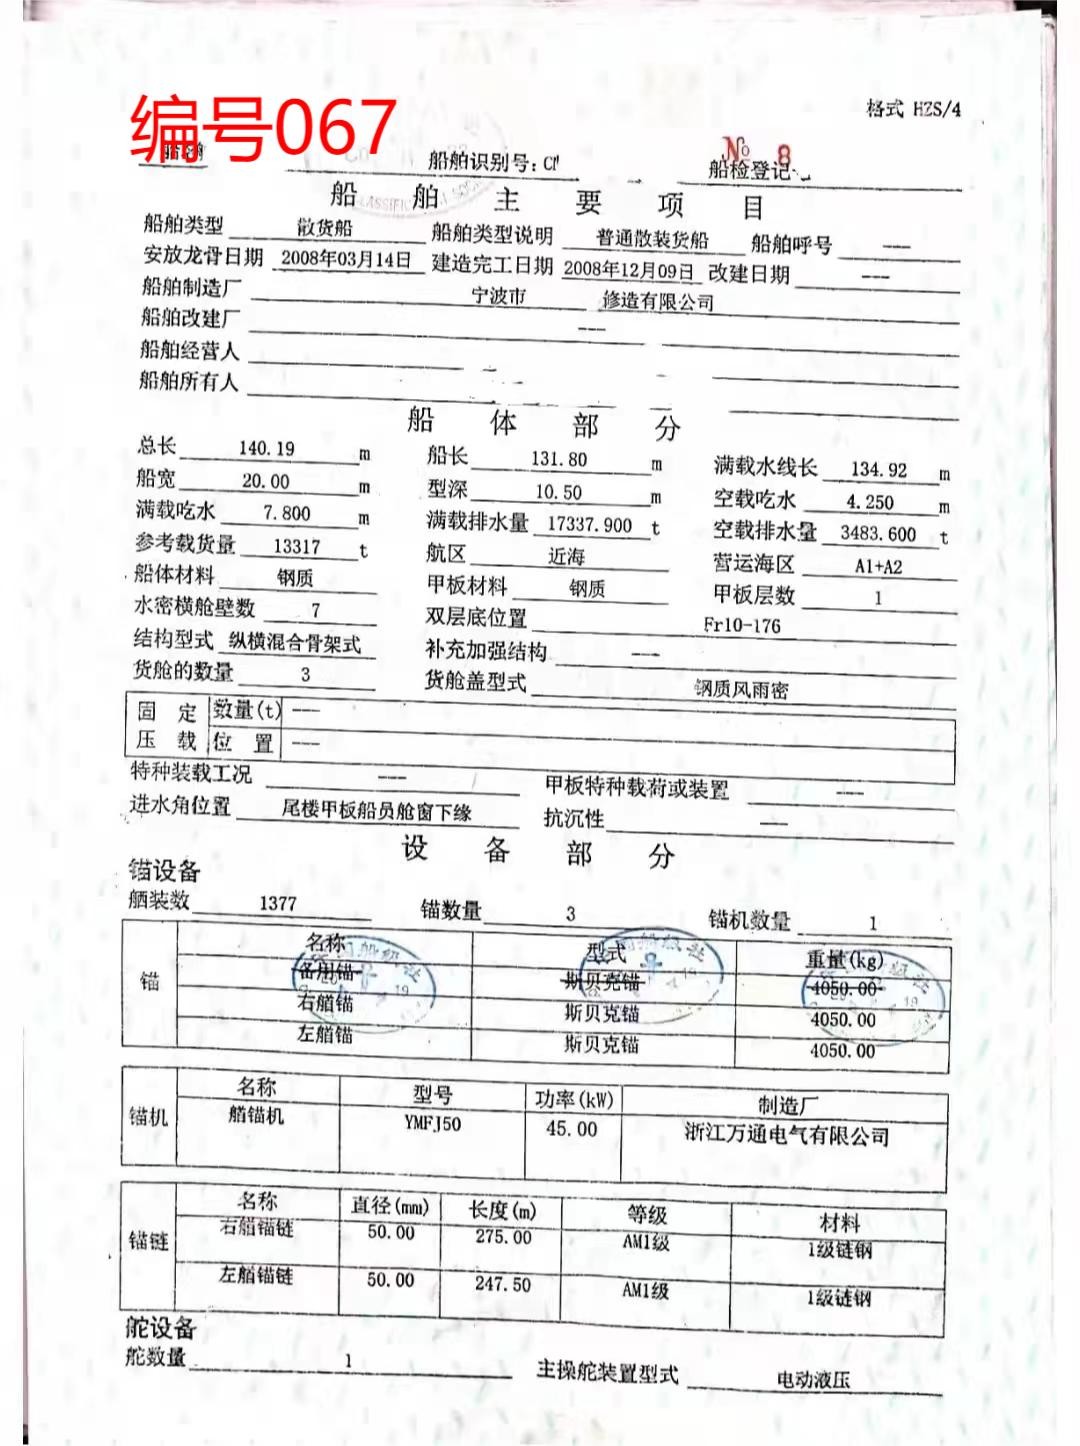 编号067
格式 HZS/4
船舶识别号:CN
№ 8
船检登记
船舶主要项目
船舶类型 散货船 船舶类型说明 普通散装货船 船舶呼号 ---
安放龙骨日期 2008年03月14日 建造完工日期 2008年12月09日 改建日期 ---
船舶制造厂 宁波市 修造有限公司
船舶改建厂 ---
船舶经营人
船舶所有人
船体部分
总长 140.19 m 船长 131.80 m 满载水线长 134.92 m
船宽 20.00 m 型深 10.50 m 空载吃水 4.250 m
满载吃水 7.800 m 满载排水量 17337.900 t 空载排水量 3483.600 t
参考载货量 13317 t 航区 近海 营运海区 A1+A2
船体材料 钢质 甲板材料 钢质 甲板层数 1
水密横舱壁数 7 双层底位置 Fr10-176
结构型式 纵横混合骨架式 补充加强结构 ---
货舱的数量 3 货舱盖型式 钢质风雨密
固定压载 数量(t) ---
位置 ---
特种装载工况 --- 甲板特种载荷或装置 ---
进水角位置 尾楼甲板船员舱窗下缘 抗沉性 ---
设备部分
锚设备
舾装数 1377 锚数量 3 锚机数量 1
锚 名称 型式 重量(kg)
备用锚 斯贝克锚 4050.00
右艏锚 斯贝克锚 4050.00
左艏锚 斯贝克锚 4050.00
锚机 名称 型号 功率(kW) 制造厂
艏锚机 YMFJ50 45.00 浙江万通电气有限公司
锚链 名称 直径(mm) 长度(m) 等级 材料
右艏锚链 50.00 275.00 AM1级 1级链钢
左艏锚链 50.00 247.50 AM1级 1级链钢
舵设备
舵数量 1 主操舵装置型式 电动液压